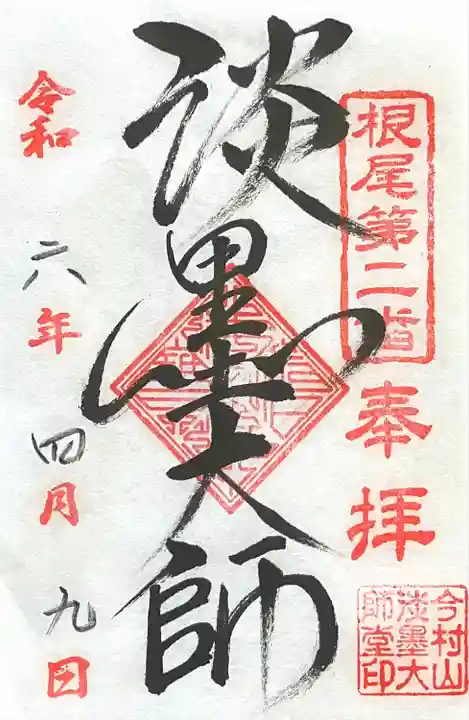 根尾第二番
奉拝
今村山
淡墨大
師堂印
淡墨大師
令和六年四月九日